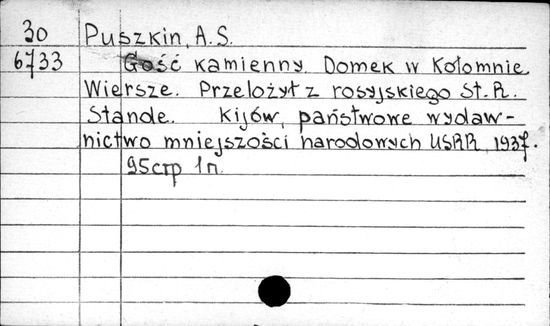 30 Puszkin, A.S.
6733 Gość kamienny. Domek w Kołomnie.
Wiersze. Przełożył z rosyjskiego St. R.
Stande. Kijów, państwowe wydaw-
nictwo mniejszości narodowych USRR, 1937.
95стр 1л.